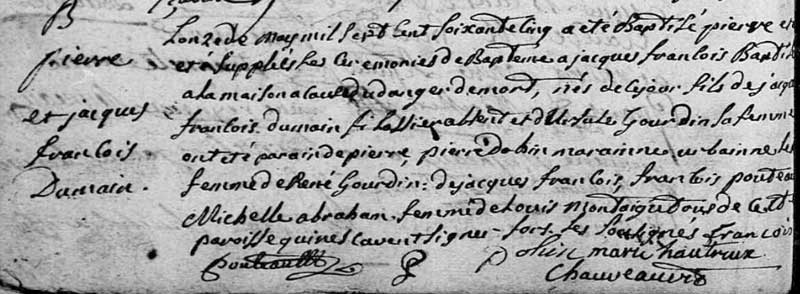 B
pierre
et jacques
francois
Dumain.
Lonze de may mil sept cent soixante cinq a été Baptisé pierre et
et supplés les ceremonies de Bapteme a jacques francois Baptisé
a la maison a cause du danger de mord, nés de ce jour fils de jacques
francois dumain filassier absent et d'Ursule Gourdin sa femme
ont été parain de pierre, pierre dobin maraine urbainne
femme de René Gourdin: de jacques francois, francois
Michelle abraham femme de Louis Montaigu tous de cette
paroisse qui ne scavent signer fors les soussignés francois
P dobin marie hautreux
Chauveau